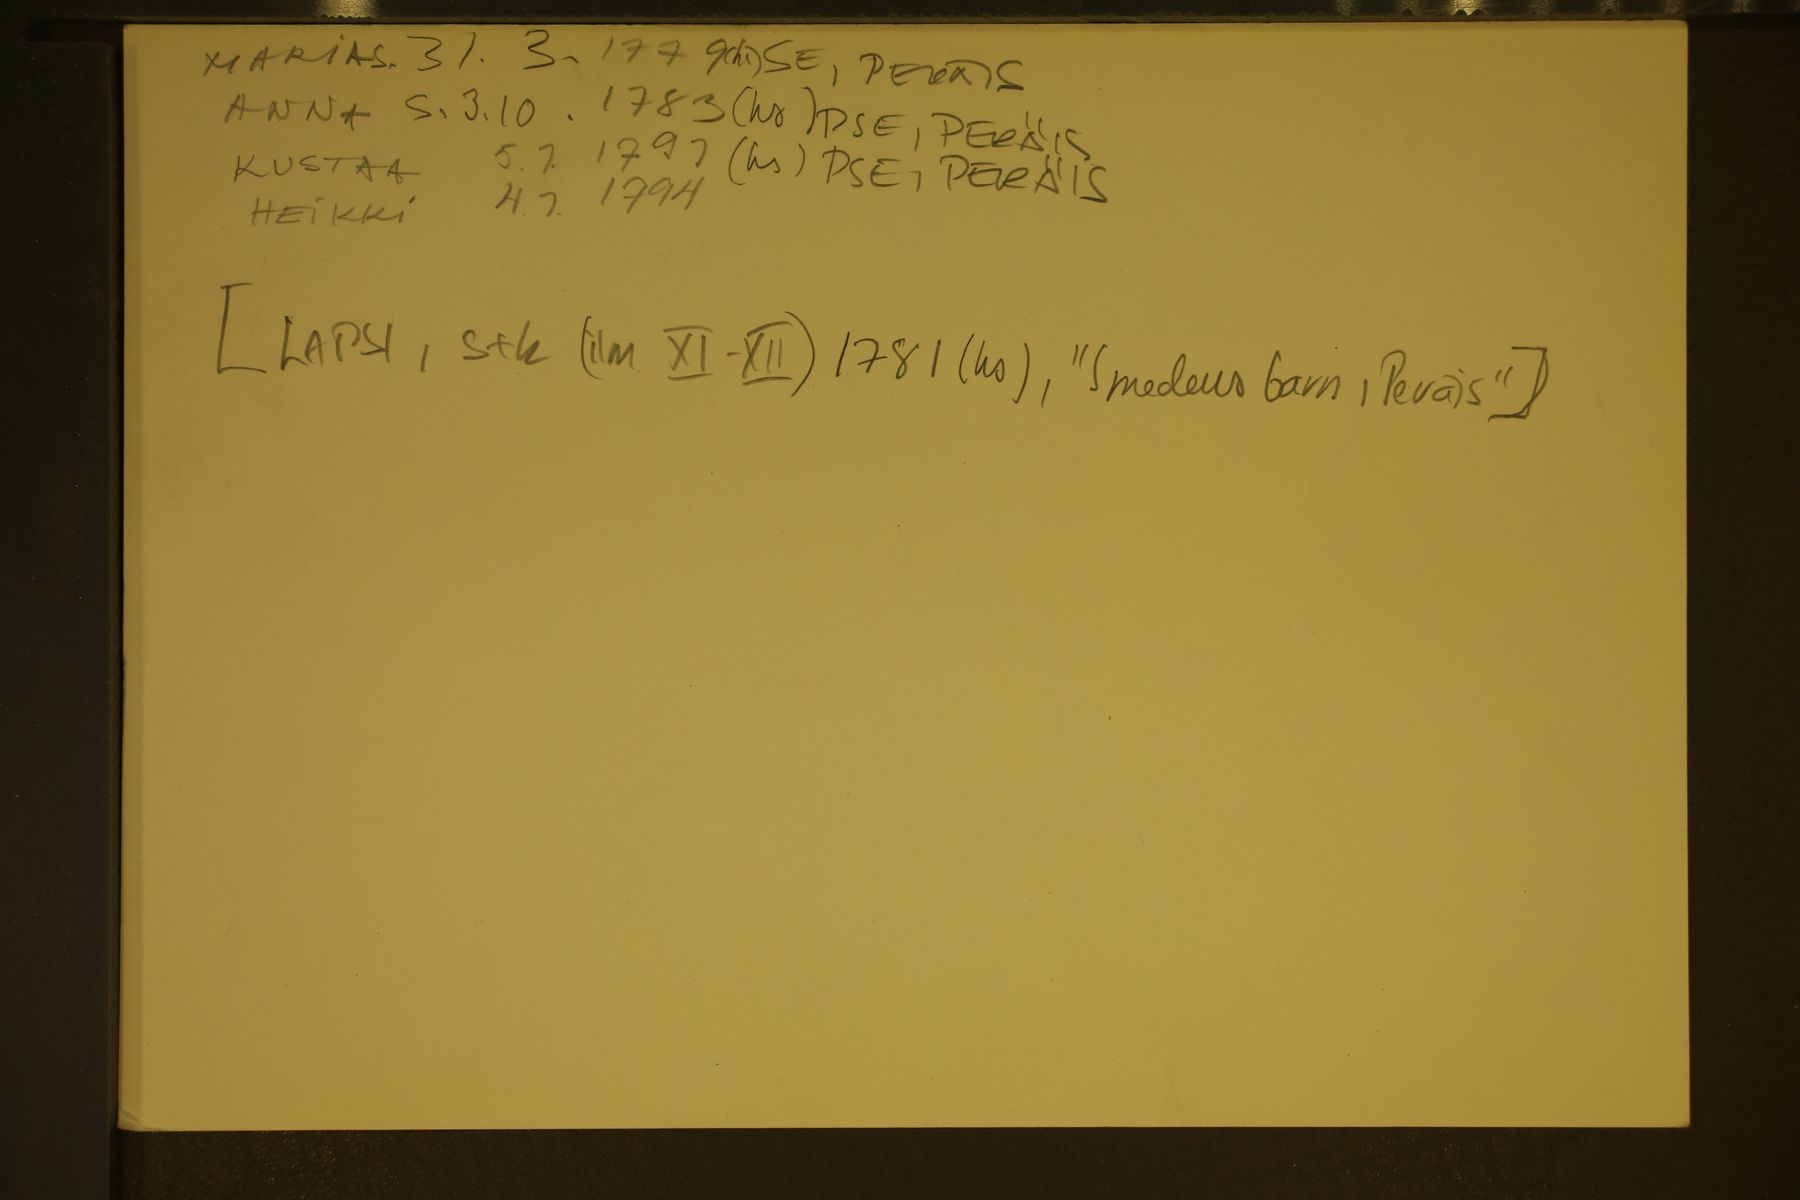 MARIA S. 31. 3. 1779 (hs) SE, PERÄIS
ANNA S. 3.10. 1783 (hs) PSE, PERÄIS
KUSTAA 5.7. 1797 (hs) PSE, PERÄIS
HEIKKI 4.7. 1794
[LAPSI, stk (ilm XI-XII) 1781 (hs), "Smedens barn, Peräis"]